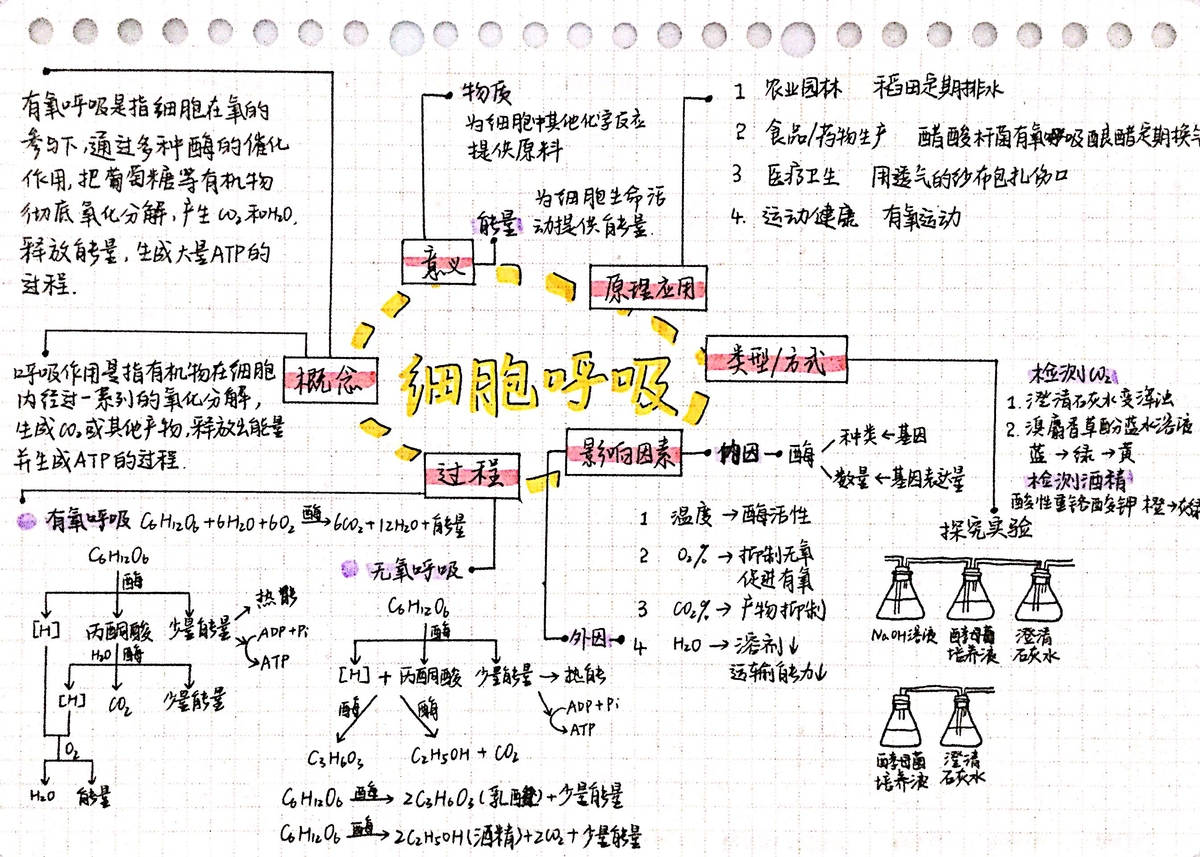 细胞呼吸
概念
有氧呼吸是指细胞在氧的
参与下,通过多种酶的催化
作用,把葡萄糖等有机物
彻底氧化分解,产生CO₂和H₂O,
释放能量,生成大量ATP的
过程.
呼吸作用是指有机物在细胞
内经过一系列的氧化分解,
生成CO₂或其他产物,释放出能量
并生成ATP的过程.
意义
物质
为细胞中其他化学反应
提供原料
能量
为细胞生命活
动提供能量.
原理应用
1 农业园林 稻田定期排水
2 食品/药物生产 醋酸杆菌有氧呼吸酿醋定期换气
3 医疗卫生 用透气的纱布包扎伤口
4. 运动健康 有氧运动
类型/方式
检测CO₂
1. 澄清石灰水变浑浊
2. 溴麝香草酚蓝水溶液
蓝→绿→黄
检测酒精
酸性重铬酸钾 橙→灰绿
探究实验
NaOH溶液 酵母菌培养液 澄清石灰水
酵母菌培养液 澄清石灰水
影响因素
内因 酶
种类←基因
数量←基因表达量
外因
1 温度→酶活性
2 O₂%→抑制无氧
促进有氧
3 CO₂%→产物抑制
4 H₂O→溶剂↓
运输能力↓
过程
有氧呼吸 C₆H₁₂O₆+6H₂O+6O₂ 酶→ 6CO₂+12H₂O+能量
C₆H₁₂O₆
酶
[H] 丙酮酸 少量能量 热能
ADP+Pi
ATP
H₂O 酶
[H] CO₂ 少量能量
O₂
H₂O 能量
无氧呼吸
C₆H₁₂O₆
酶
[H] + 丙酮酸 少量能量→热能
ADP+Pi
ATP
酶 酶
C₃H₆O₃ C₂H₅OH + CO₂
C₆H₁₂O₆ 酶→ 2C₃H₆O₃(乳酸)+少量能量
C₆H₁₂O₆ 酶→ 2C₂H₅OH(酒精)+2CO₂+少量能量